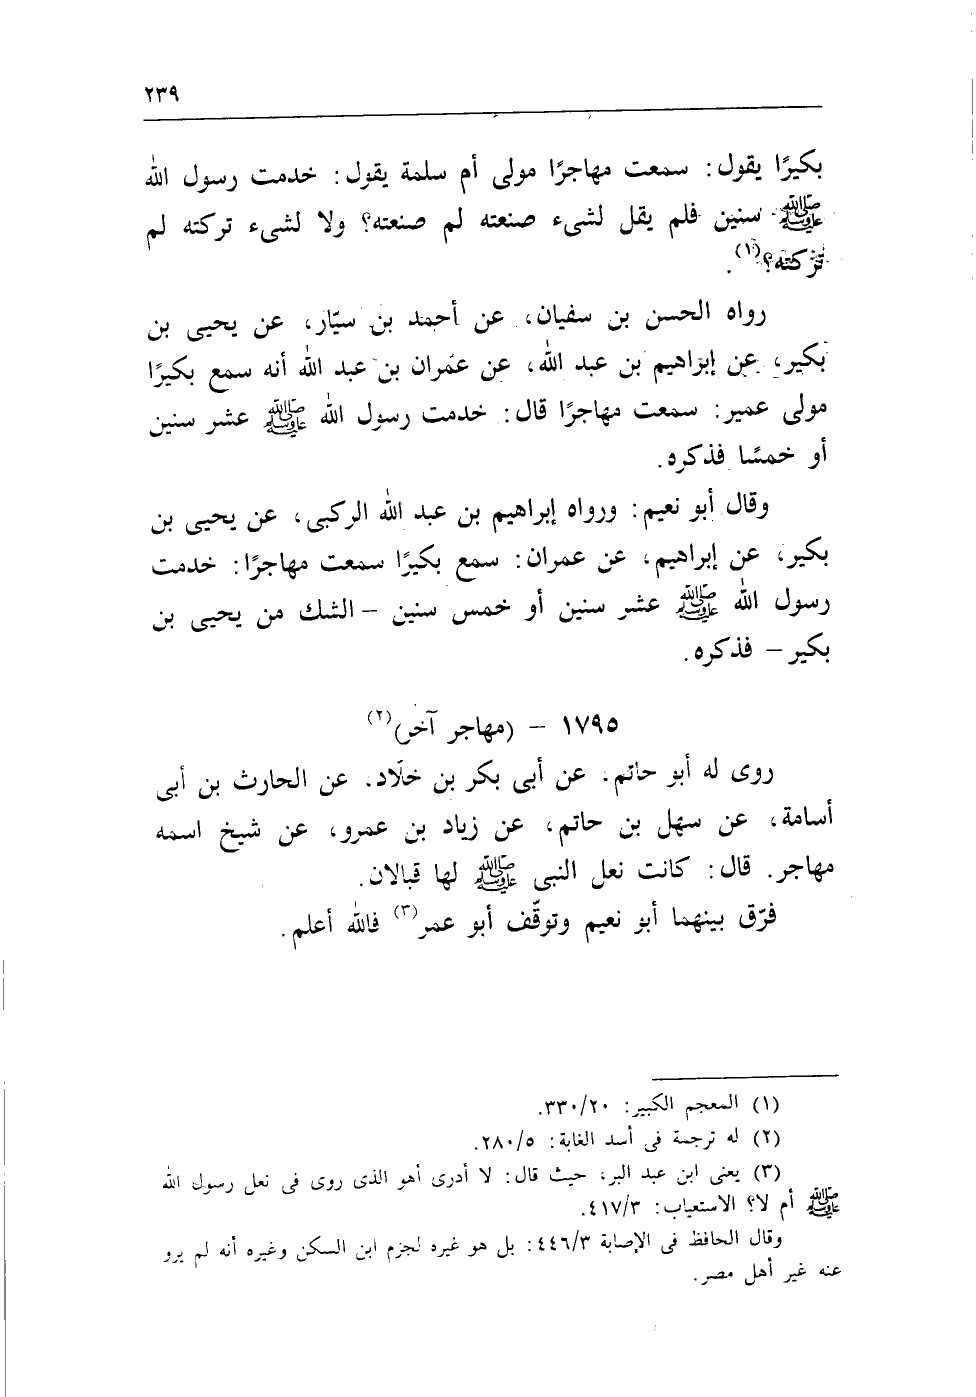 ٢٣٩
بكيرًا يقول: سمعت مهاجرًا مولى أم سلمة يقول: خدمت رسول الله
ﷺ سنين فلم يقل لشىء صنعته لم صنعته؟ ولا لشىء تركته لم
تركته؟(١).
رواه الحسن بن سفيان، عن أحمد بن سيّار، عن يحيى بن
بكير، عن إبراهيم بن عبد الله، عن عمران بن عبد الله أنه سمع بكيرًا
مولى عمير: سمعت مهاجرًا قال: خدمت رسول الله ﷺ عشر سنين
أو خمسًا فذكره.
وقال أبو نعيم: ورواه إبراهيم بن عبد الله الركبى، عن يحيى بن
بكير، عن إبراهيم، عن عمران: سمع بكيرًا سمعت مهاجرًا: خدمت
رسول الله ﷺ عشر سنين أو خمس سنين – الشك من يحيى بن
بكير – فذكره.
١٧٩٥ – (مهاجر آخر)(٢)
روى له أبو حاتم. عن أبى بكر بن خلّاد. عن الحارث بن أبى
أسامة، عن سهل بن حاتم، عن زياد بن عمرو، عن شيخ اسمه
مهاجر. قال: كانت نعل النبى ﷺ لها قبالان.
فرّق بينهما أبو نعيم وتوقّف أبو عمر(٣) فالله أعلم.
(١) المعجم الكبير: ٣٣٠/٢٠.
(٢) له ترجمة فى أسد الغابة: ٢٨٠/٥.
(٣) يعنى ابن عبد البر، حيث قال: لا أدرى أهو الذى روى فى نعل رسول الله
ﷺ أم لا؟ الاستعياب: ٤١٧/٣.
وقال الحافظ فى الإصابة ٤٤٦/٣: بل هو غيره لجزم ابن السكن وغيره أنه لم يرو
عنه غير أهل مصر.